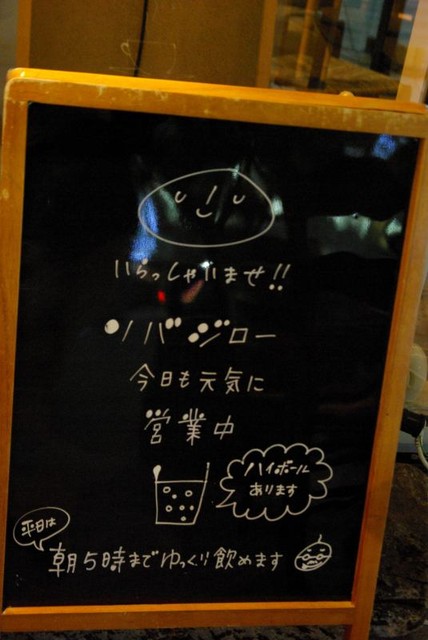 いらっしゃいませ!!
ソバジロー
今日も元気に
営業中
ハイボール
あります
平日は
朝5時までゆっくり飲めます